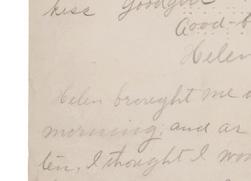 kiss Goodgirl
Good-b
Helen
Helen brought me a
morning; and as
ten, I thought I wou